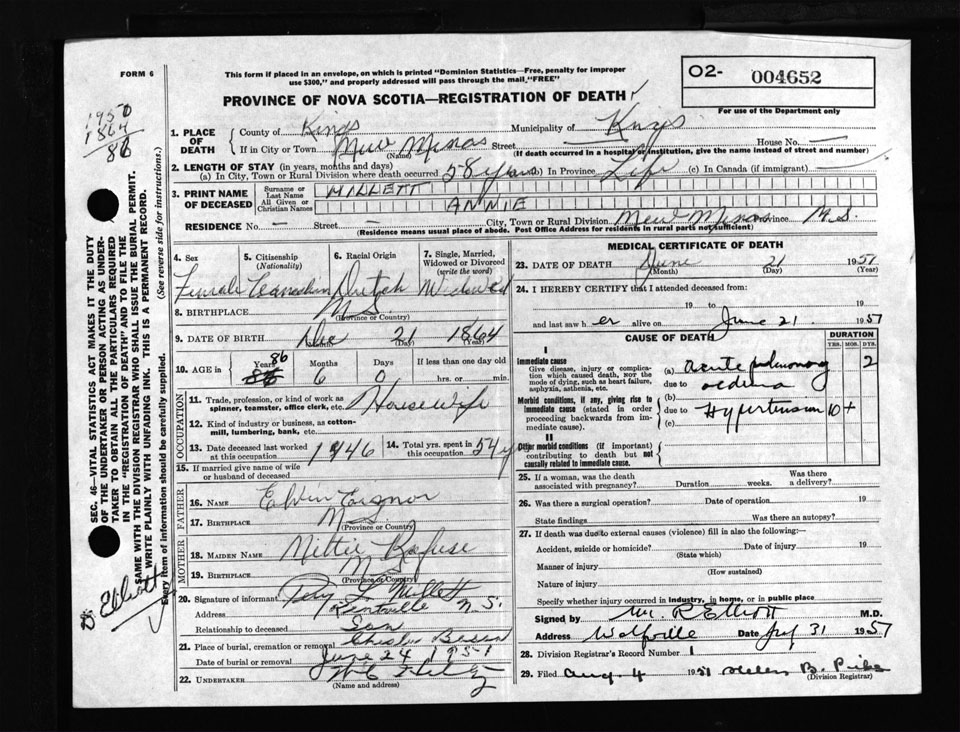 FORM 6
This form if placed in an envelope, on which is printed "Dominion Statistics—Free, penalty for improper
use $300," and properly addressed will pass through the mail, "FREE"
O2- 004652
For use of the Department only
PROVINCE OF NOVA SCOTIA—REGISTRATION OF DEATH
1950
1864
86
1. PLACE OF DEATH
County of Kings Municipality of Kings
If in City or Town New Minas Street House No.
(Name) (If death occurred in a hospital or institution, give the name instead of street and number)
2. LENGTH OF STAY (in years, months and days)
(a) In City, Town or Rural Division where death occurred 58 years (b) In Province Life (c) In Canada (if immigrant)
3. PRINT NAME OF DECEASED
Surname or Last Name MILLETT
All Given or Christian Names ANNIE
RESIDENCE No. — Street — City, Town or Rural Division New Minas Province N.S.
(Residence means usual place of abode. Post Office Address for residents in rural parts not sufficient)
4. Sex Female
5. Citizenship (Nationality) Canadian
6. Racial Origin Dutch
7. Single, Married, Widowed or Divorced (write the word) Widowed
8. BIRTHPLACE N.S.
(Province or Country)
9. DATE OF BIRTH Dec 21 1864
(Month) (Day) (Year)
10. AGE in Years 86 Months 6 Days 0 If less than one day old
hrs. or min.
OCCUPATION
11. Trade, profession, or kind of work as
spinner, teamster, office clerk, etc. Housewife
12. Kind of industry or business, as cotton-
mill, lumbering, bank, etc.
13. Date deceased last worked
at this occupation 1946
14. Total yrs. spent in
this occupation 54 yrs
15. If married give name of wife
or husband of deceased
FATHER
16. NAME Elvin
17. BIRTHPLACE N S
(Province or Country)
MOTHER
18. MAIDEN NAME Rafuse
19. BIRTHPLACE N S
(Province or Country)
20. Signature of informant Millett
Address Kentville N.S.
Relationship to deceased Son
21. Place of burial, cremation or removal Chester Basin
Date of burial or removal June 24 1951
22. UNDERTAKER
(Name and address)
MEDICAL CERTIFICATE OF DEATH
23. DATE OF DEATH June 21 1951
(Month) (Day) (Year)
24. I HEREBY CERTIFY that I attended deceased from:
19 to 19
and last saw her alive on June 21. 1951
CAUSE OF DEATH DURATION
YRS. MOS. DYS.
I
Immediate cause
Give disease, injury or complica-
tion which caused death, not the
mode of dying, such as heart failure,
asphyxia, asthenia, etc.
(a) acute pulmonary 2
due to oedema
Morbid conditions, if any, giving rise to
immediate cause (stated in order
proceeding backwards from im-
mediate cause).
(b)
due to Hypertension 10+
(c)
II
Other morbid conditions (if important)
contributing to death but not
causally related to immediate cause.
25. If a woman, was the death
associated with pregnancy? Duration weeks. Was there
a delivery?
26. Was there a surgical operation? Date of operation 19
State findings Was there an autopsy?
27. If death was due to external causes (violence) fill in also the following:
Accident, suicide or homicide? Date of injury 19
(State which)
Manner of injury
(How sustained)
Nature of injury
Specify whether injury occurred in industry, in home, or in public place
Signed by R Elliott M.D.
Address Wolfville Date July 31 1951
28. Division Registrar's Record Number 1
29. Filed Aug. 4 1951 Helen B.
(Division Registrar)
SEC. 46—VITAL STATISTICS ACT MAKES IT THE DUTY
OF THE UNDERTAKER OR PERSON ACTING AS UNDER-
TAKER TO OBTAIN ALL THE PARTICULARS REQUIRED
IN THE "REGISTRATION OF DEATH" AND TO FILE THE
SAME WITH THE DIVISION REGISTRAR WHO SHALL ISSUE THE BURIAL PERMIT.
WRITE PLAINLY WITH UNFADING INK. THIS IS A PERMANENT RECORD.
Every item of information should be carefully supplied. (See reverse side for instructions.)
Dr. Elliott